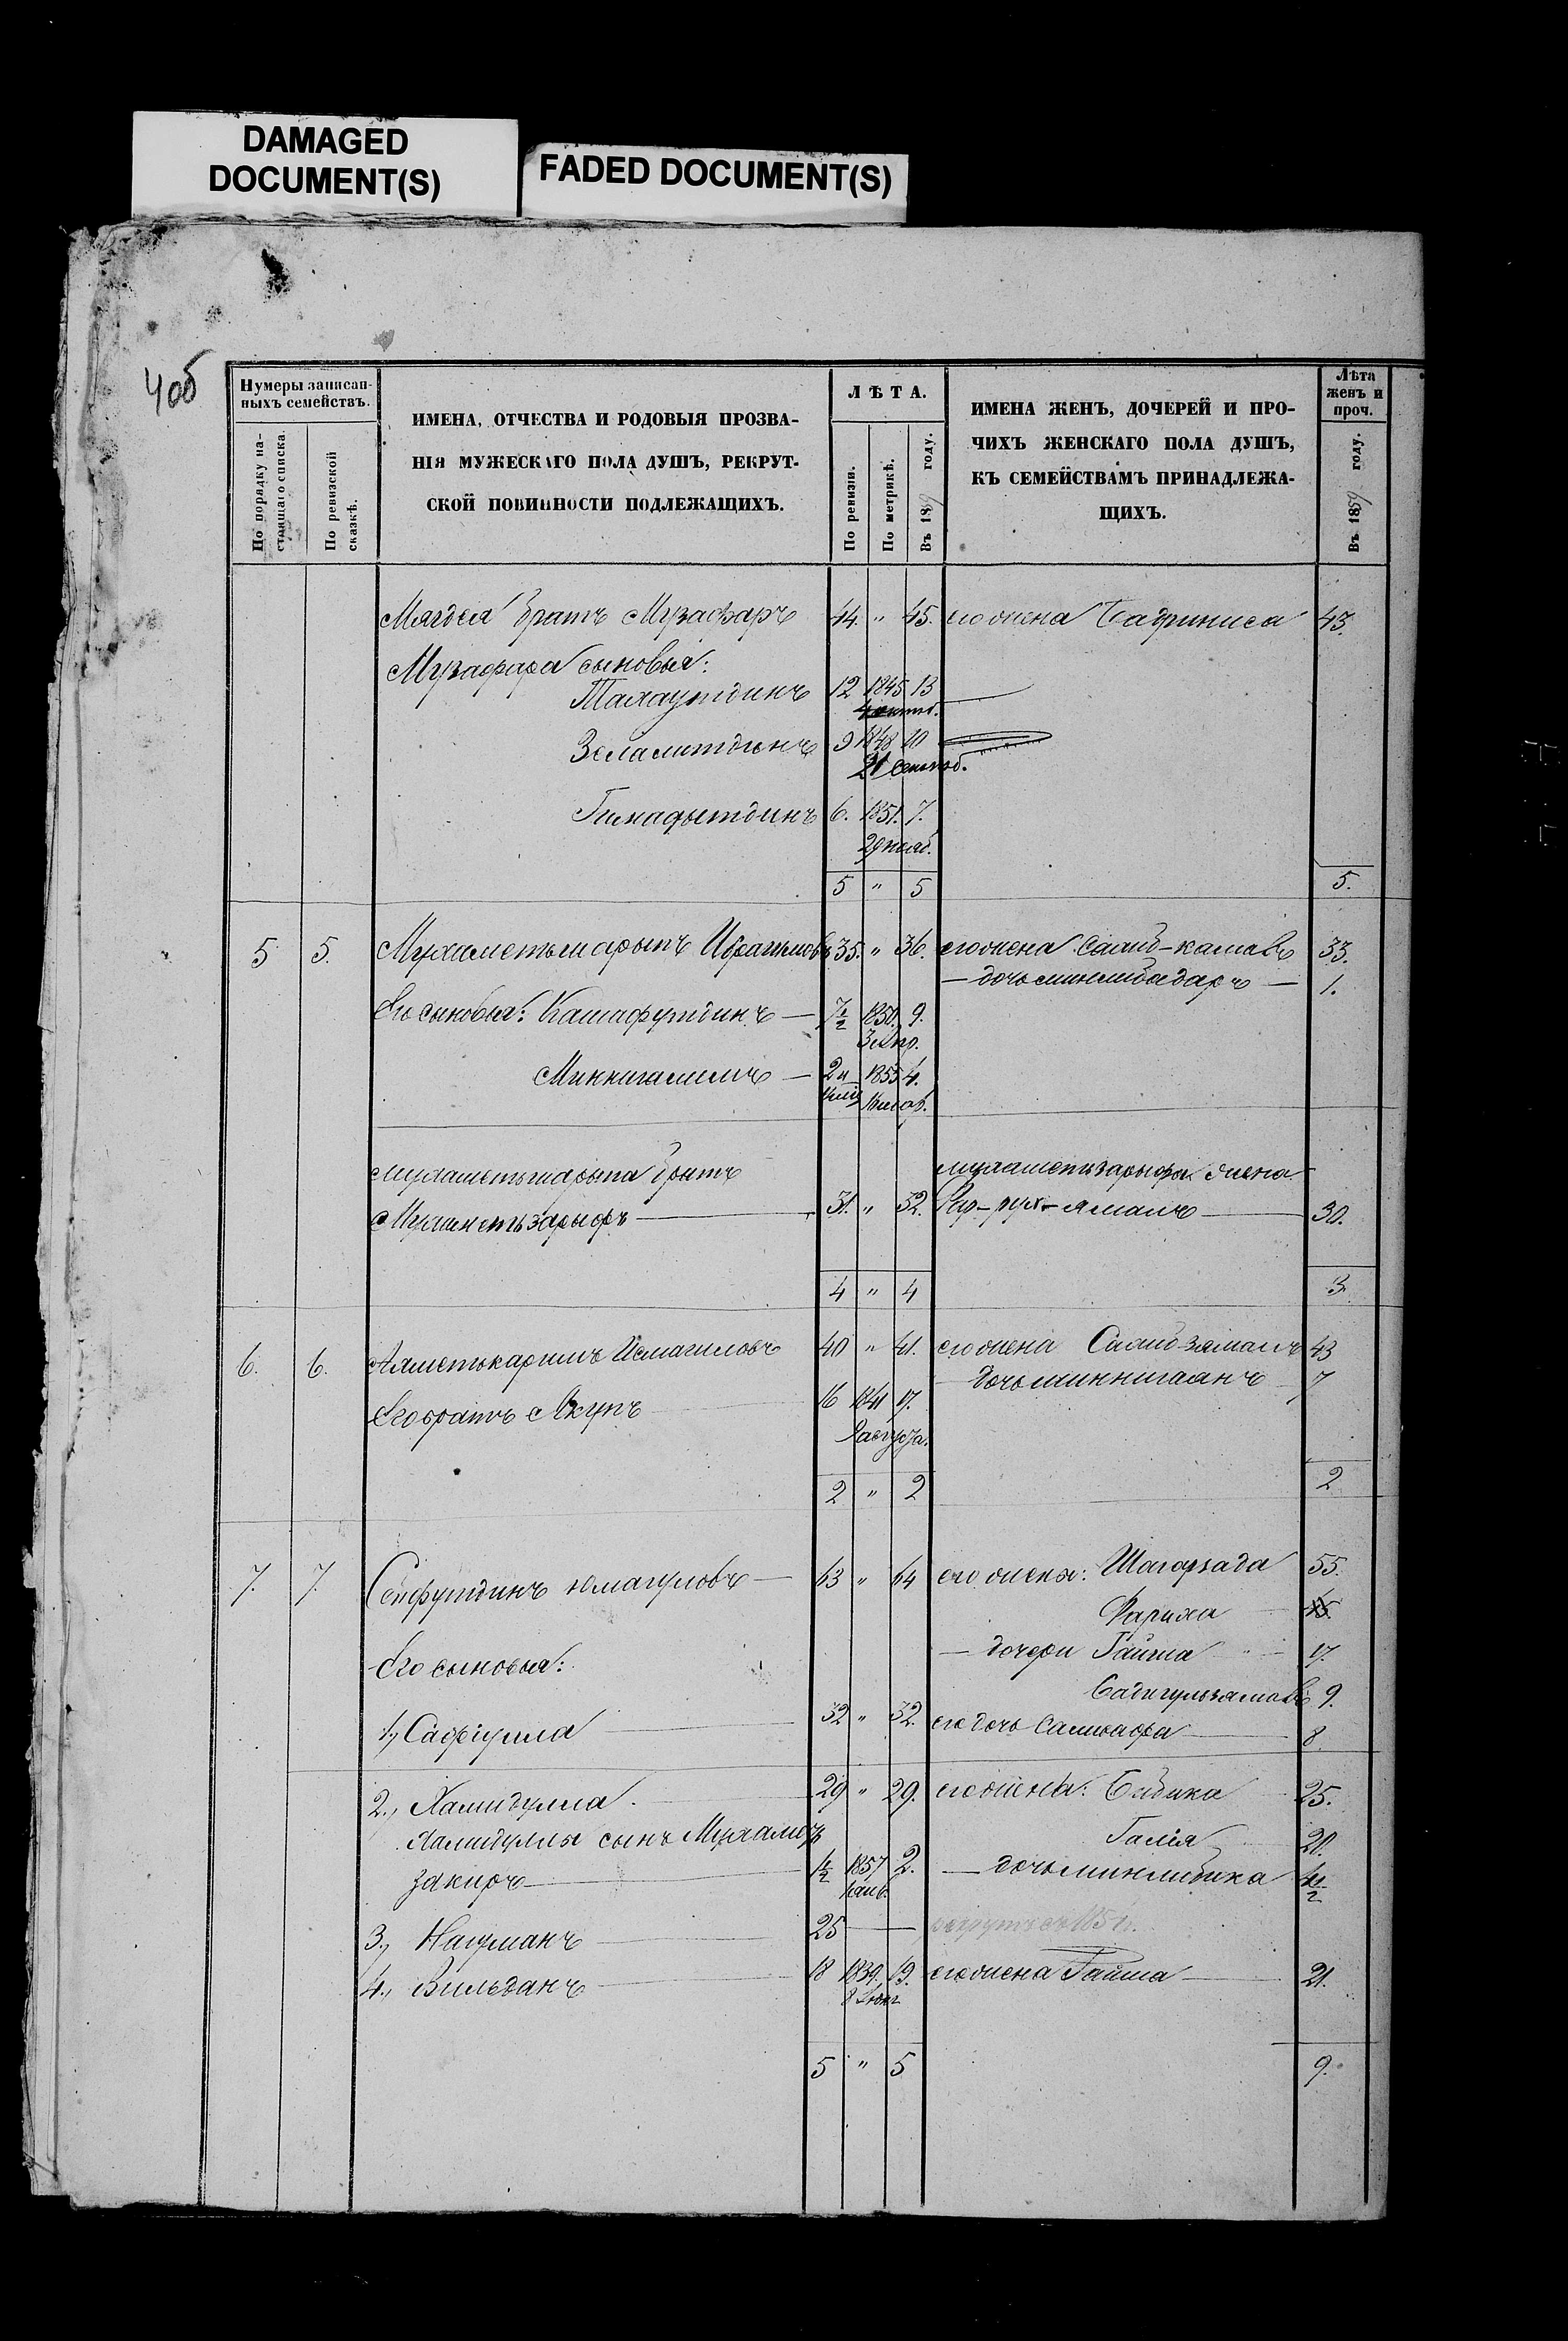 DAMAGED
DOCUMENT(S)
FADED DOCUMENT(S)
4об
Нумеры записан-
ныхъ семействъ.
По порядку на-
стоящаго списка.
По ревизской
сказкѣ.
ИМЕНА, ОТЧЕСТВА И РОДОВЫЯ ПРОЗВА-
НІЯ МУЖЕСКАГО ПОЛА ДУШЪ, РЕКРУТ-
СКОЙ ПОВИННОСТИ ПОДЛЕЖАЩИХЪ.
ЛѢТА.
По ревизіи.
По метрикѣ.
Въ 1859 году.
ИМЕНА ЖЕНЪ, ДОЧЕРЕЙ И ПРО-
ЧИХЪ ЖЕНСКАГО ПОЛА ДУШЪ,
КЪ СЕМЕЙСТВАМЪ ПРИНАДЛЕЖА-
ЩИХЪ.
Лѣта
женъ и
проч.
Въ 1859 году.
Мягдея братъ Музафаръ 44. " 45. его жена Бадриниса 43.
Музафара сыновья:
Талаутдинъ 12 1845 13
9 1848 10
21 сентяб.
Гимадытдинъ 6. 1851. 7.
29 нояб.
5 " 5 5.
5 5. Мухаметьшарыпъ Ибрагимовъ 35. " 36. его жена Саиид-камалъ 33.
— дочь минлибадаръ — 1.
Его сыновья: Кашафутдинъ — 7½ 1850. 9.
Миннигалимъ — 2 и 1855 4.
мухаметьшарыпа братъ мухаметьзарыфа жена
Мухаметьзарыфъ — 31. " 32. 30.
4 " 4 3
6. 6. Ахметькаримъ Исмагиловъ 40 " 41. его жена 43
дочь миннигаянъ 7
Его братъ Якупъ 16 1841 17.
Августа.
2 " 2 2
7. 7. Сейфутдинъ Юмагуловъ — 63 " 64 его жены: Шагарзада 55.
Фариха 45.
— дочери Гайша 17.
Его сыновья:
9.
1, Сафіулла 32 " 32. его дочь 8.
2., Хамидулла. 29 " 29. его жены: Бибика 25.
Хамидуллы сынъ Мухаметъ Галія 20.
закиръ — 1½ 1857 2. — дочь минлибика 1½
янв.
3., Нагуманъ 25 —
4., Вильданъ 18 1839. 19. его жена Гайша — 21.
5 " 5 9.